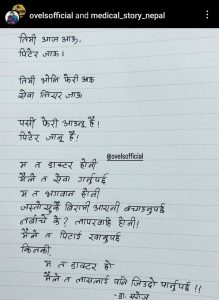 ovelsofficial and medical_story_nepal
तिमी आज आऊ,
पिटेर जाऊ।
तिमी भोलि फेरी आऊ
सेवा लिएर जाऊ
पर्सी फेरी आउनू है!
पिटेर जानू है!
@ovelsofficial
म त डाक्टर होनी
मैले त सेवा गर्नुपर्छ
म त भगवान होनी
जस्तोसुकै बिरामी आएनी बचाउनुपर्छ
नबाँचे के? लापरवाहि होनी!
मैले त पिटाई खानुपर्छ
किनकी
म त डाक्टर हो
मैले त लासलाई पनि जिउदो पार्नुपर्छ !!
- डा.